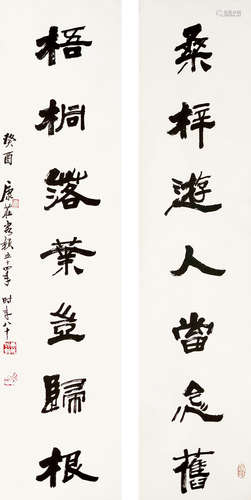 桑梓遊人當念舊
梧桐落葉豈歸根
癸酉
康莊
五十四年 時年八十